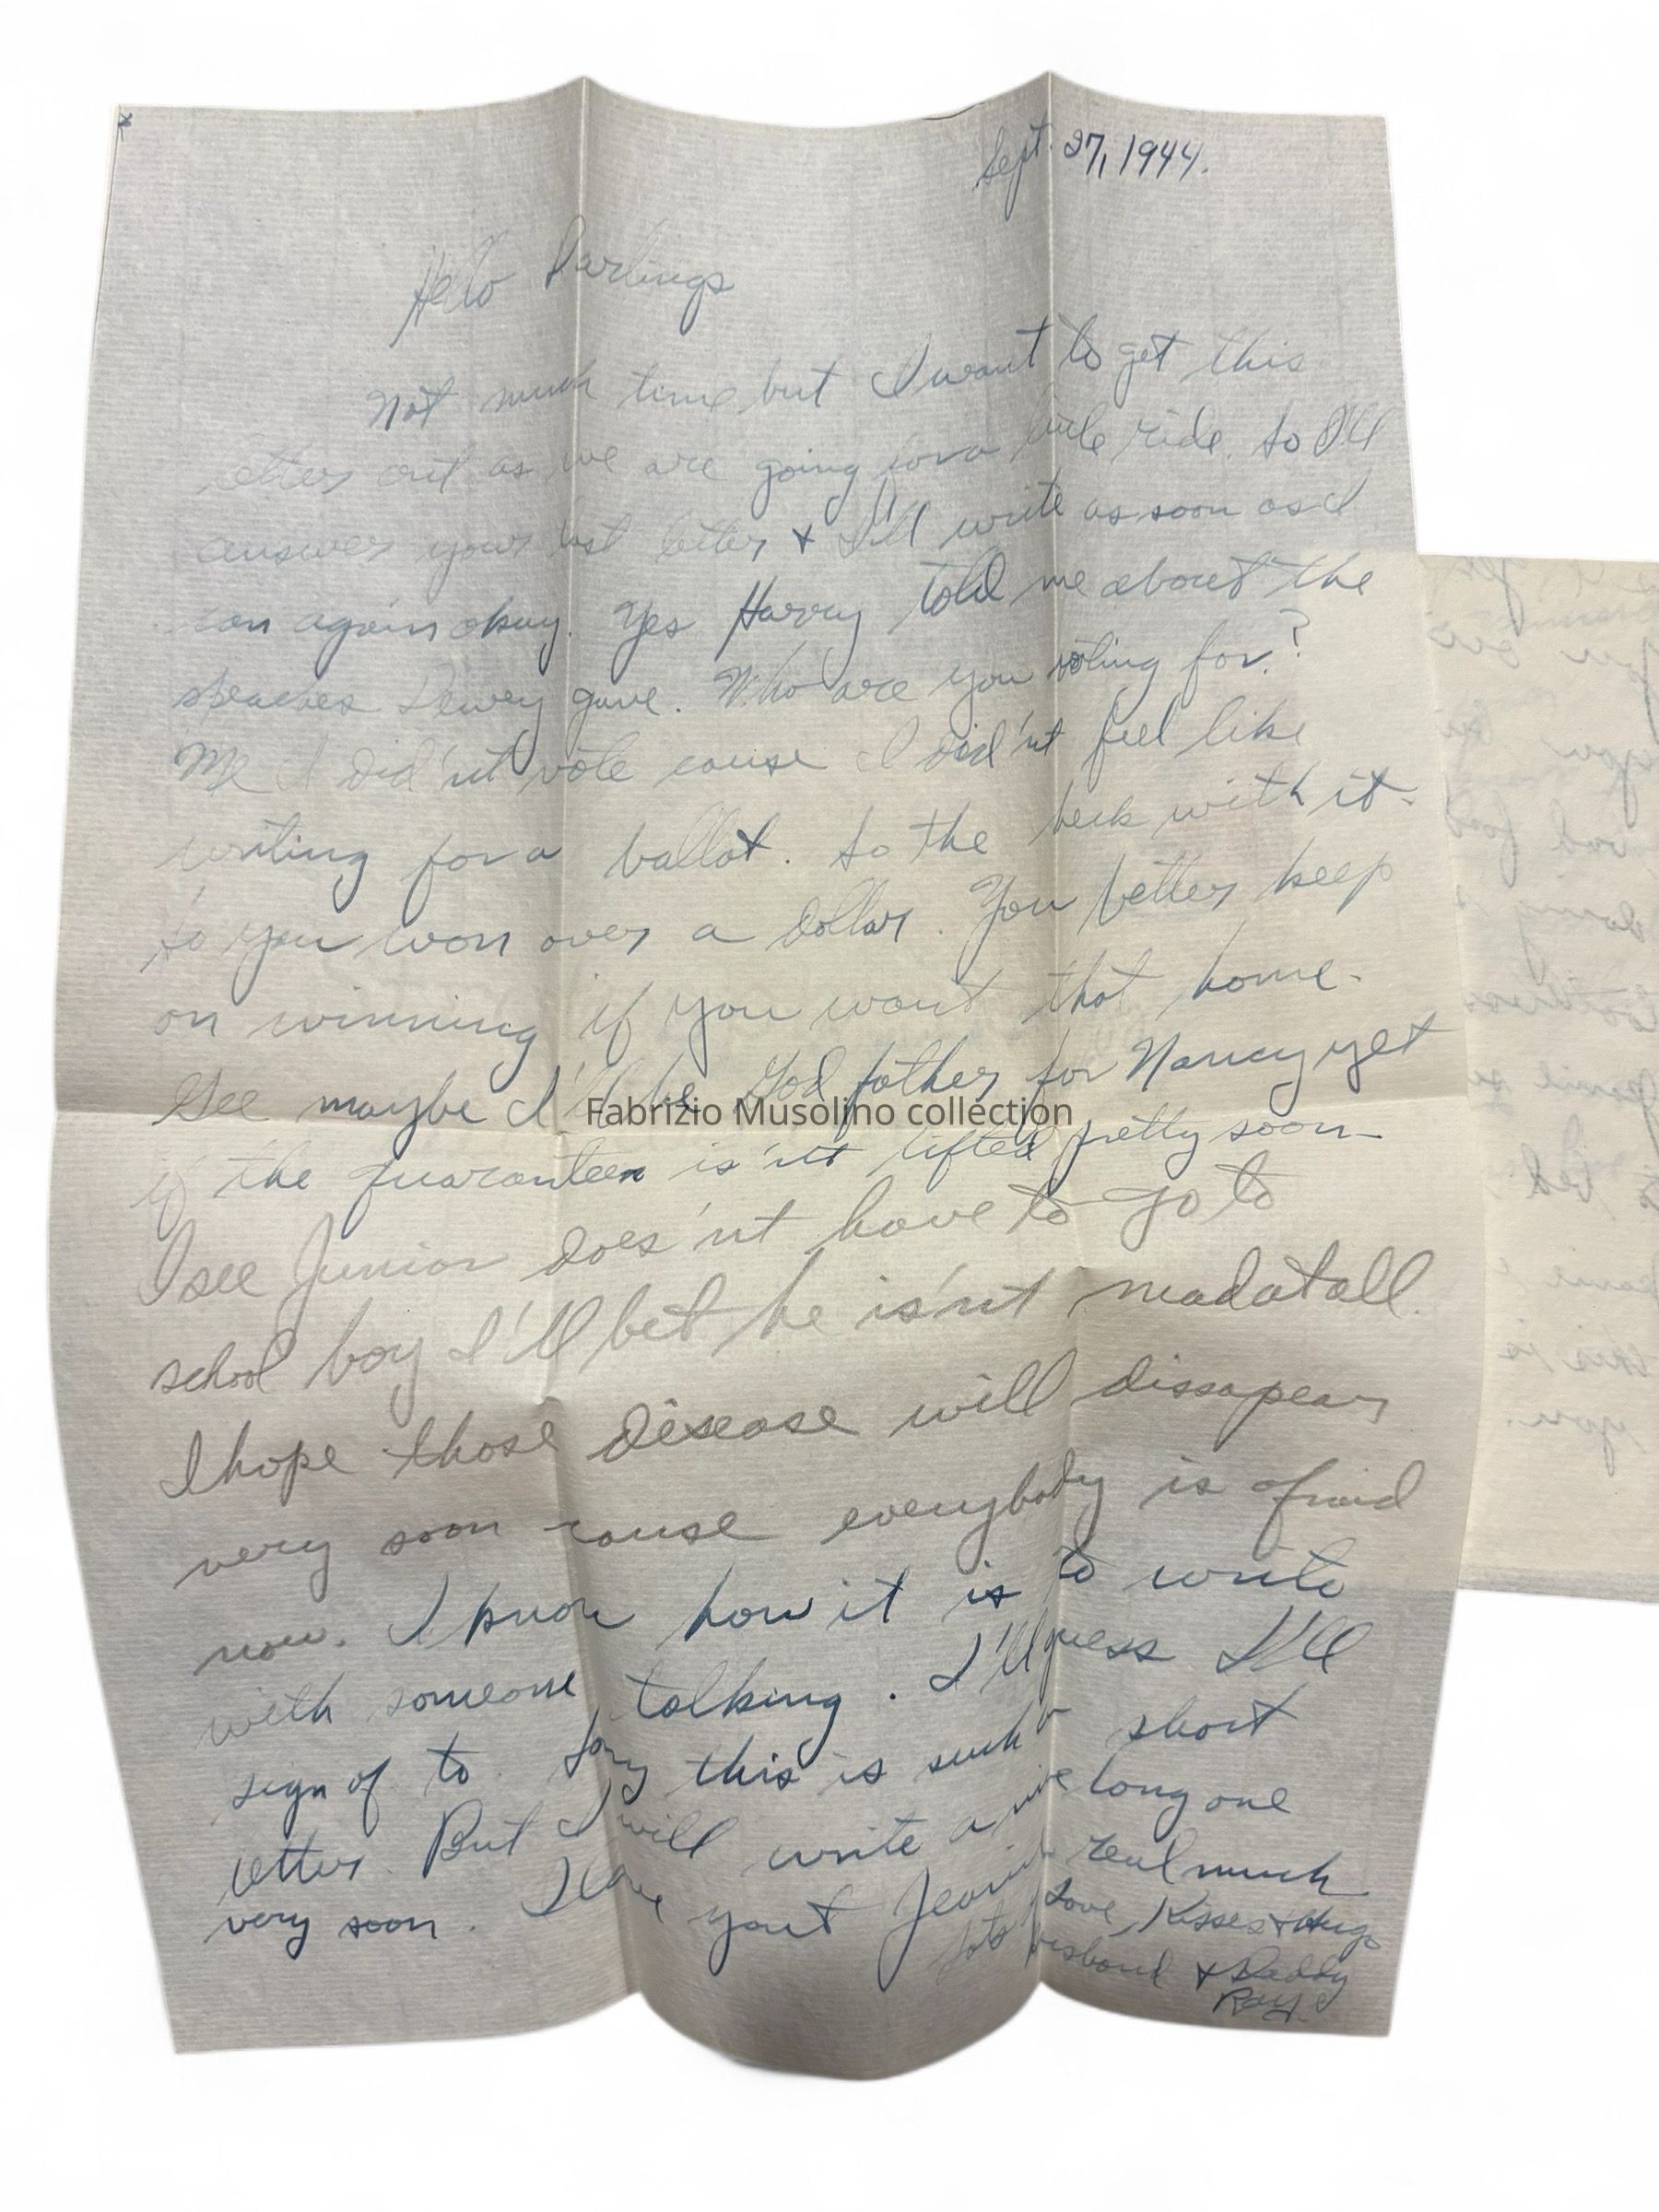 Sept. 27, 1944.
Hello Darlings
Not much time but I want to get this
letter out as we are going for a little ride. So I'll
answer your last letter & I'll write as soon as I
can again okay. Yes Harry told me about the
speaches Dewey gave. Who are you voting for?
Me I did'nt vote cause I did'nt feel like
writing for a ballot. So the heck with it-
So you won over a dollar. You better keep
on winning if you want that home-
Gee maybe I'll be God father for Nancy yet
Fabrizio Musolino collection
if the quaranteen is'nt lifted pretty soon-
I see Junior does'nt have to go to
school boy I'll bet he is'nt mad at all.
I hope those disease will dissapear
very soon cause everybody is afraid
now. I know how it is to write
with someone talking. I'll guess I'll
sign of to. Sorry this is such a short
letter. But I will write a nice long one
very soon. I love you & Jeanie real much
Lots Love, Kisses & Hugs
husband & Daddy
Ray